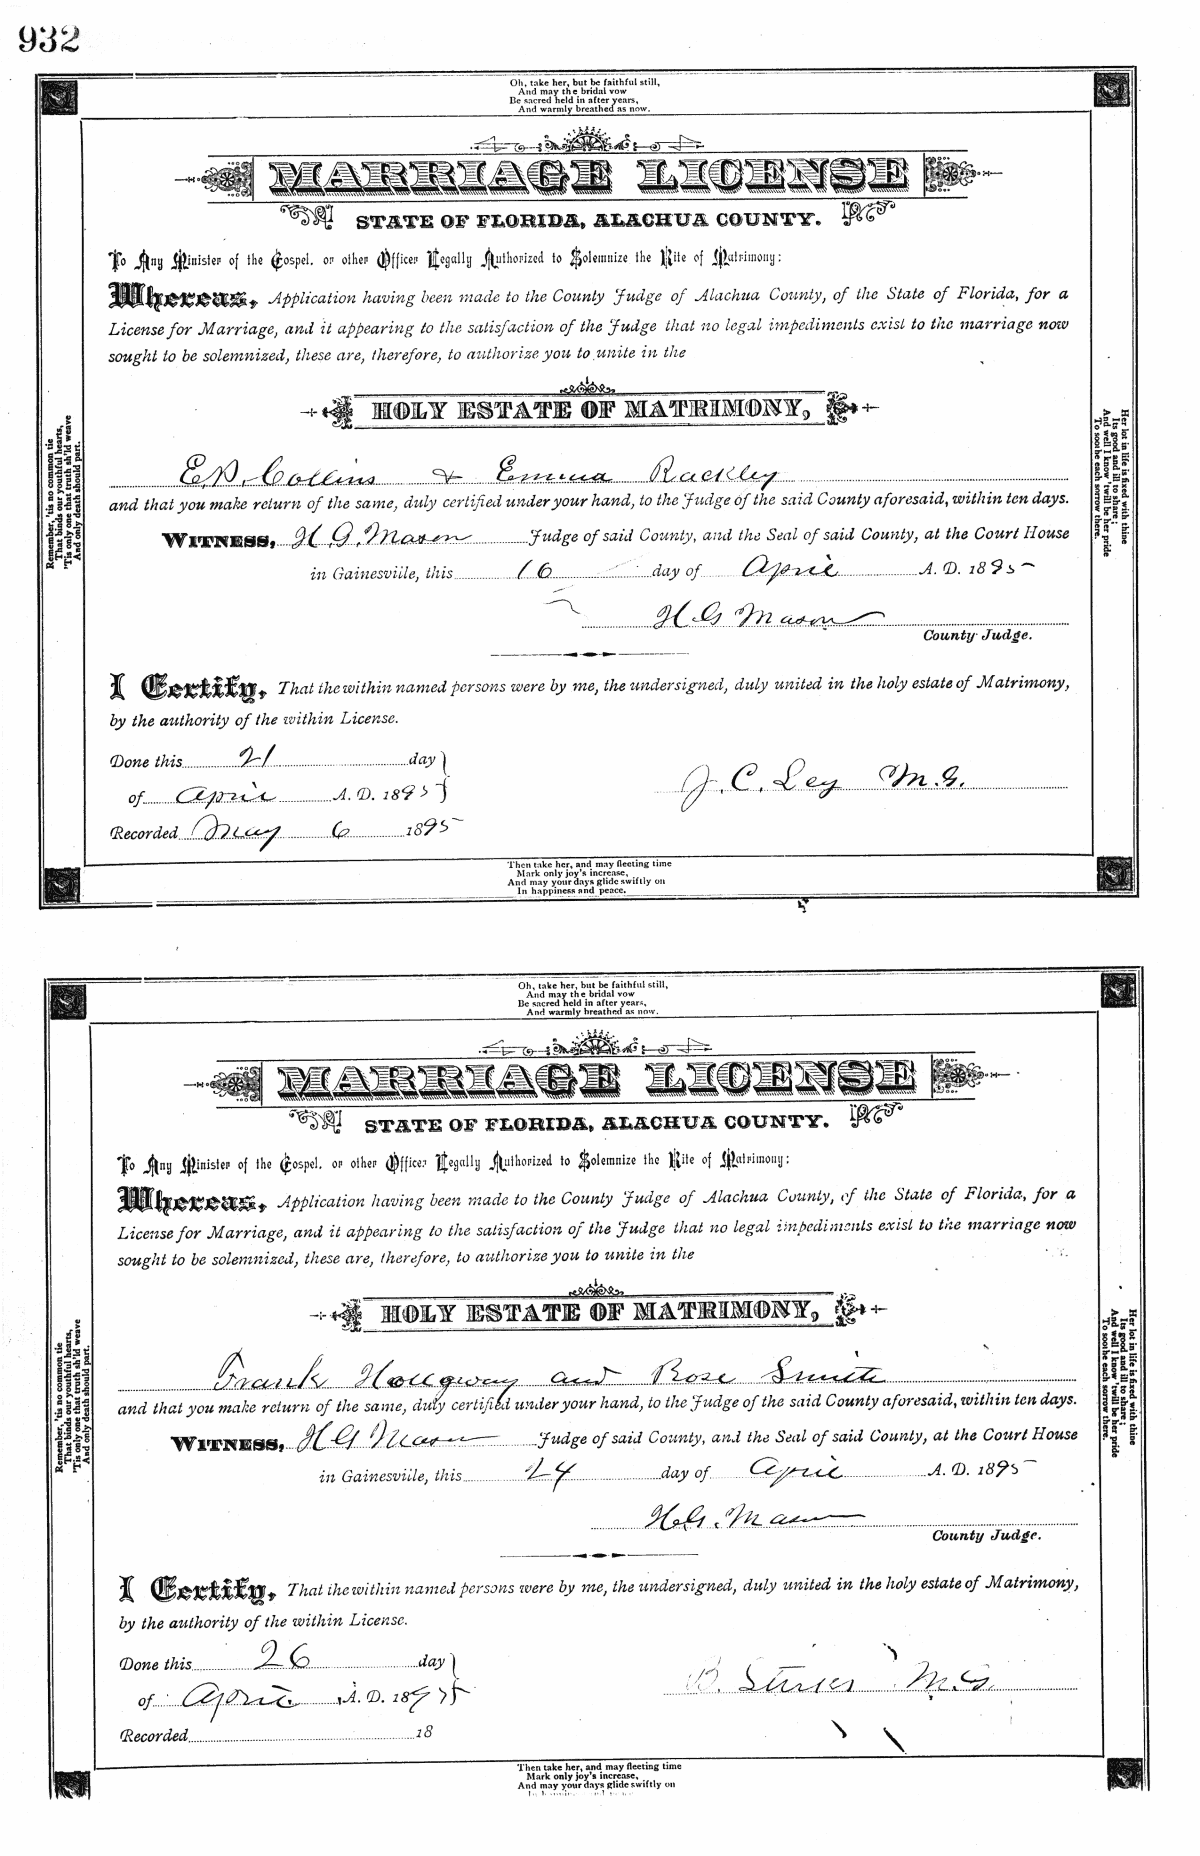 932
Oh, take her, but be faithful still,
And may the bridal vow
Be sacred held in after years,
And warmly breathed as now.
MARRIAGE LICENSE
STATE OF FLORIDA, ALACHUA COUNTY.
To Any Minister of the Gospel, or other Officer Legally Authorized to Solemnize the Rite of Matrimony:
Whereas, Application having been made to the County Judge of Alachua County, of the State of Florida, for a
License for Marriage, and it appearing to the satisfaction of the Judge that no legal impediments exist to the marriage now
sought to be solemnized, these are, therefore, to authorize you to unite in the
HOLY ESTATE OF MATRIMONY,
Remember, 'tis no common tie
That binds our youthful hearts,
'Tis only one that truth sh'ld weave
And only death should part.
Her lot in life is fixed with thine
Its good and ill to share;
And well I know 'twill be her pride
To soothe each sorrow there.
Collins & Emma Rackley
and that you make return of the same, duly certified under your hand, to the Judge of the said County aforesaid, within ten days.
WITNESS, H. G. Mason Judge of said County, and the Seal of said County, at the Court House
in Gainesville, this 16 day of April A. D. 1895
H G Mason
County Judge.
I Certify, That the within named persons were by me, the undersigned, duly united in the holy estate of Matrimony,
by the authority of the within License.
Done this 21 day
of April A. D. 1895
J. C. Ley M.G.
Recorded May 6 1895
Then take her, and may fleeting time
Mark only joy's increase,
And may your days glide swiftly on
In happiness and peace.
Oh, take her, but be faithful still,
And may the bridal vow
Be sacred held in after years,
And warmly breathed as now.
MARRIAGE LICENSE
STATE OF FLORIDA, ALACHUA COUNTY.
To Any Minister of the Gospel, or other Officer Legally Authorized to Solemnize the Rite of Matrimony:
Whereas, Application having been made to the County Judge of Alachua County, of the State of Florida, for a
License for Marriage, and it appearing to the satisfaction of the Judge that no legal impediments exist to the marriage now
sought to be solemnized, these are, therefore, to authorize you to unite in the
HOLY ESTATE OF MATRIMONY,
Remember, 'tis no common tie
That binds our youthful hearts,
'Tis only one that truth sh'ld weave
And only death should part.
Her lot in life is fixed with thine
Its good and ill to share;
And well I know 'twill be her pride
To soothe each sorrow there.
Frank and Rose Smith
and that you make return of the same, duly certified under your hand, to the Judge of the said County aforesaid, within ten days.
WITNESS, H G Mason Judge of said County, and the Seal of said County, at the Court House
in Gainesville, this 24 day of April A. D. 1895
H.G. Mason
County Judge.
I Certify, That the within named persons were by me, the undersigned, duly united in the holy estate of Matrimony,
by the authority of the within License.
Done this 26 day
of April A. D. 1895
B. M.G.
Recorded 18
Then take her, and may fleeting time
Mark only joy's increase,
And may your days glide swiftly on